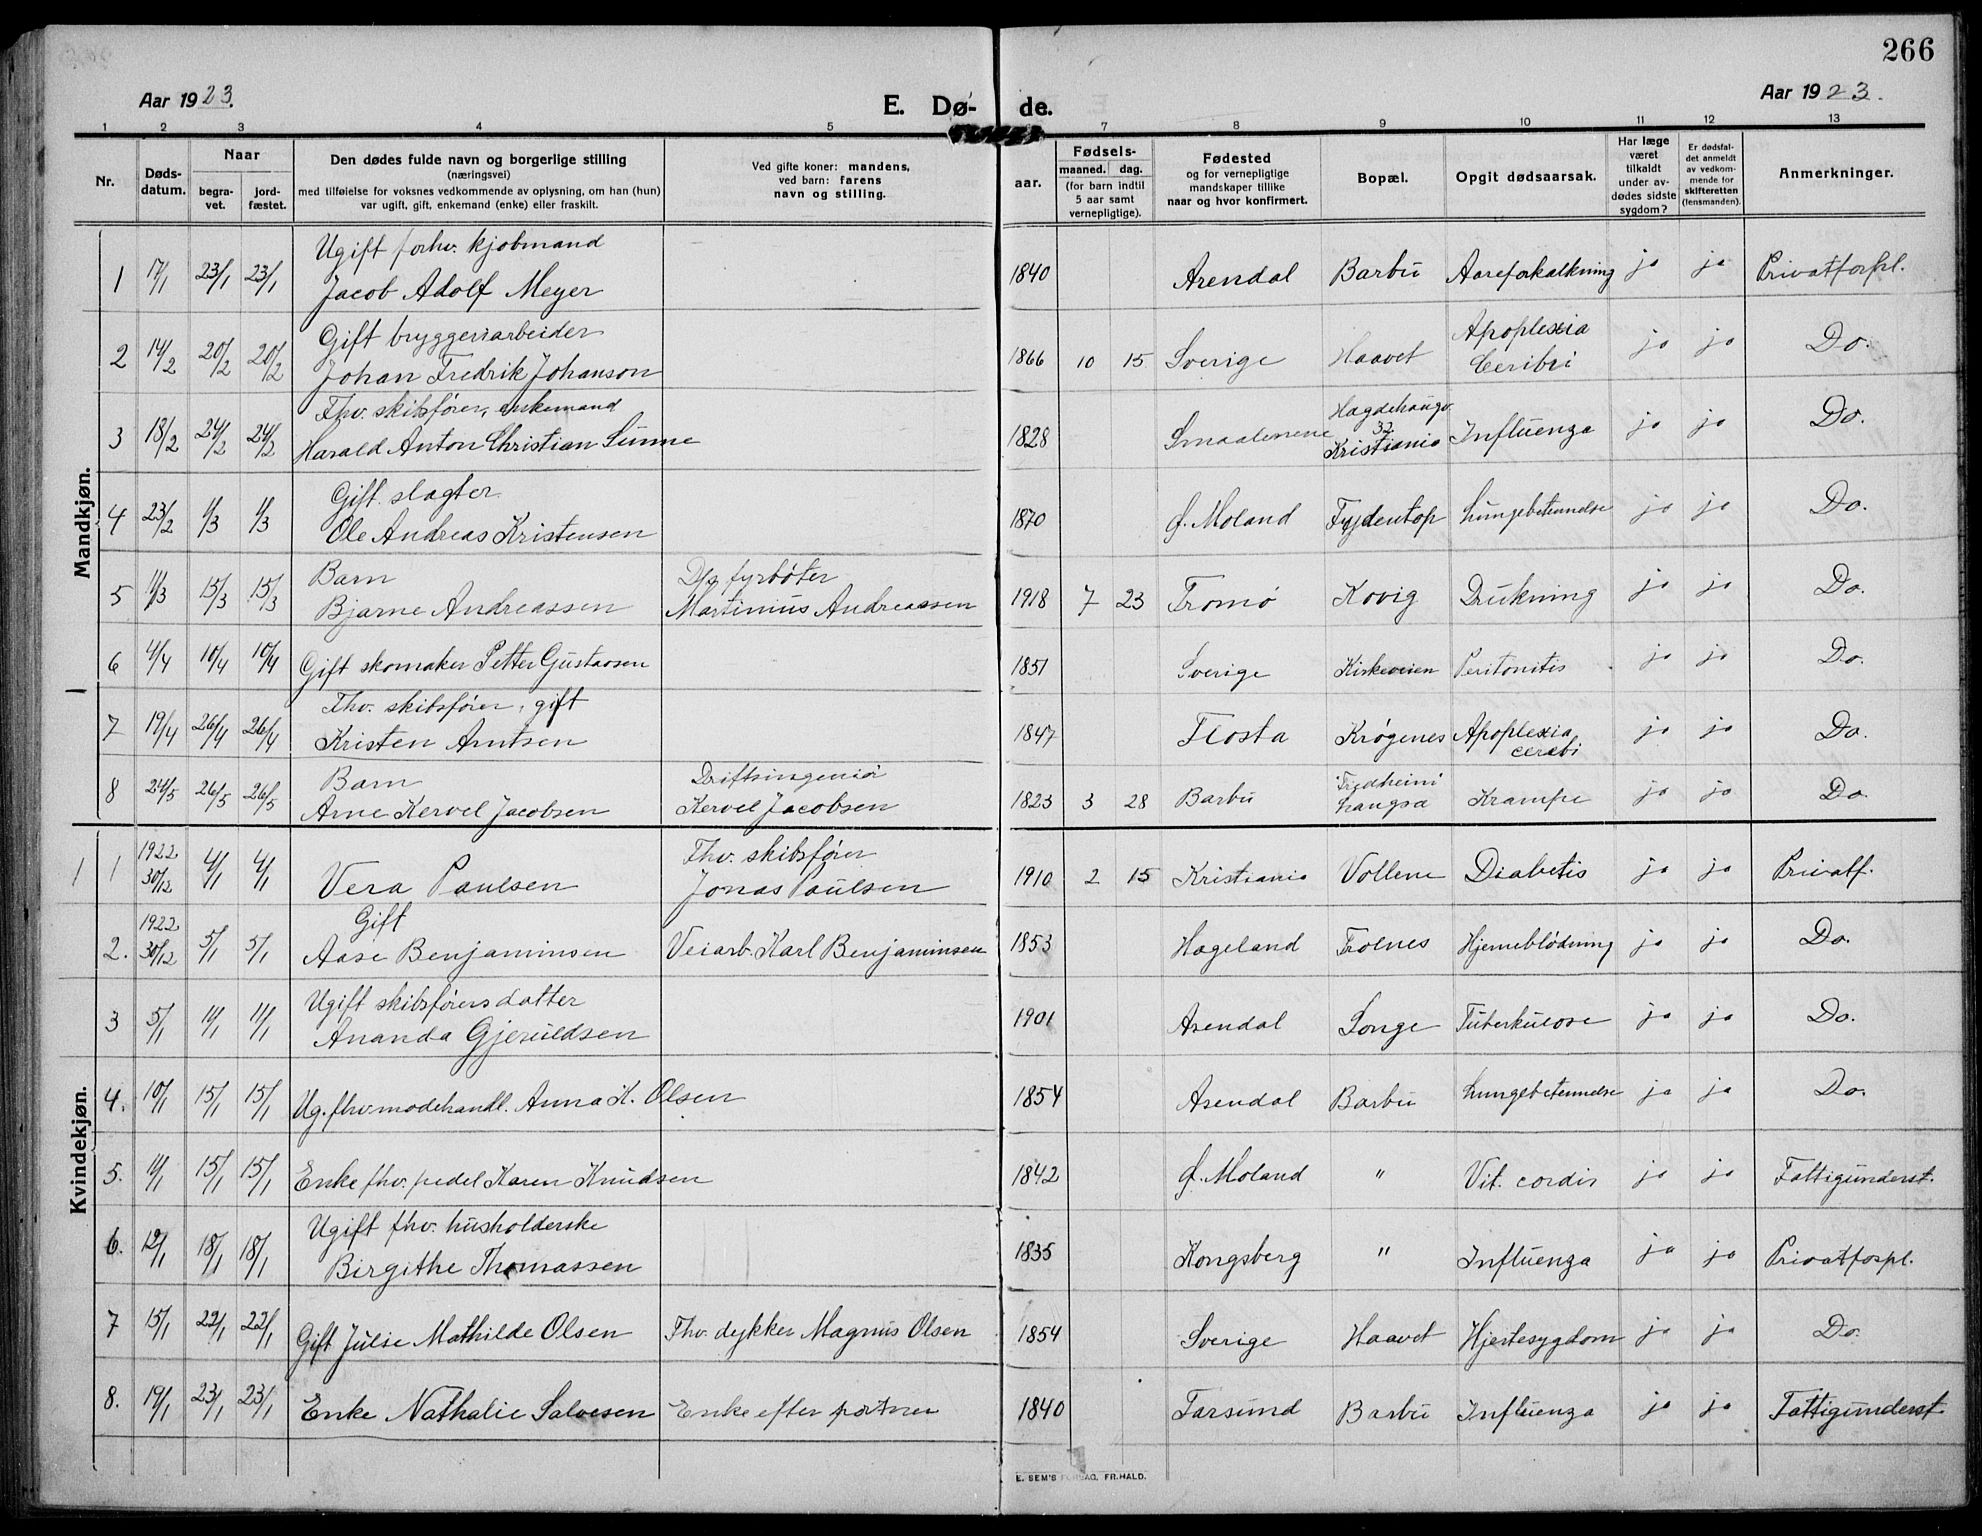 266
Aar 1923.
E. Dø- de.
Aar 1923.
1 2 3 4 5 7 8 9 10 11 12 13
Nr.
Døds-datum.
Naar
begra-vet.
jord-fæstet.
Den dødes fulde navn og borgerlige stilling
(næringsvei)
med tilføielse for voksnes vedkommende av oplysning, om han (hun)
var ugift, gift, enkemand (enke) eller fraskilt.
Ved gifte koner: mandens,
ved barn: farens
navn og stilling.
aar.
Fødsels-
maaned. dag.
(for barn indtil
5 aar samt
vernepligtige).
Fødested
og for vernepligtige
mandskaper tillike
naar og hvor konfirmert.
Bopæl.
Opgit dødsaarsak.
Har læge
været
tilkaldt
under av-
dødes sidste
sygdom?
Er dødsfal-
det anmeldt
av vedkom-
mende for
skifteretten
(lensmanden).
Anmerkninger.
Mandkjøn.
Ugift forhv. kjøbmand
1 17/1 23/1 23/1 Jacob Adolf Meyer 1840 Arendal Barbu Aareforkalkning ja ja Privatforpl.
Gift bryggeriarbeider
2 14/2 20/2 20/2 Johan Fredrik Johanson 1866 10 15 Sverige Haavet Apoplexia Ceribri ja ja Do.
Fhv. skibsfører, enkemand
3 18/2 24/2 24/2 Harald Anton Christian Sunne 1828 Smaalenene Hagdehaugv. 32 Kristiania Influenza ja ja Do.
Gift slagter
4 23/2 1/3 1/3 Ole Andreas Kristensen 1870 Ø. Moland Fyddentop Lungebetennelse ja ja Do.
Barn D/s fyrbøter
5 11/3 15/3 15/3 Bjarne Andreassen Martinius Andreassen 1918 7 23 Tromø Kovig Drukning ja ja Do.
6 4/4 10/4 10/4 Gift skomaker Petter Gustavsen 1851 Sverige Kirkeveien Peritonitis ja ja Do.
Fhv. skibsfører, gift
7 19/4 26/4 26/4 Kristen Arntsen 1847 Flosta Krøgenes Apoplexia cerebi ja ja Do.
Barn Driftsingeniør
8 24/5 26/5 26/5 Arne Kervel Jacobsen Kervel Jacobsen 1823 3 28 Barbu "Fredheim" Langsæ Krampe ja ja Do
Kvindekjøn.
1922 Fhv. skibsfører
1 30/12 4/1 4/1 Vera Paulsen Jonas Paulsen 1910 2 15 Kristiania Vollene Diabetis ja ja Privatf.
1922 Gift
2. 30/12 5/1 5/1 Aase Benjaminsen Veiarb. Karl Benjaminsen 1853 Hageland Trolnes Hjerneblødning ja ja Do.
Ugift skibsførersdatter
3 5/1 11/1 11/1 Ananda Gjeruldsen 1901 Arendal Songe Tuberkulose ja ja Do.
4. 10/1 15/1 15/1 Ug. fhv. modehandl. Anna K. Olsen 1854 Arendal Barbu Lungebetennelse ja ja Do.
5. 11/1 15/1 15/1 Enke fhv. pedel Karen Knudsen 1842 Ø. Moland " Vit. cordis ja ja Fattigunderst.
Ugift fhv. husholderske
6. 12/1 18/1 18/1 Birgithe Thomassen 1835 Kongsberg " Influenza ja ja Privatforpl.
7 15/1 22/1 22/1 Gift Julie Mathilde Olsen Fhv. dykker Magnus Olsen 1854 Sverige Haavet Hjertesygdom ja ja Do.
8. 19/1 23/1 23/1 Enke Nathalie Salvesen Enke efter portner 1840 Farsund Barbu Influenza ja ja Fattigunderst.
E. SEM'S FORLAG, FR.HALD.